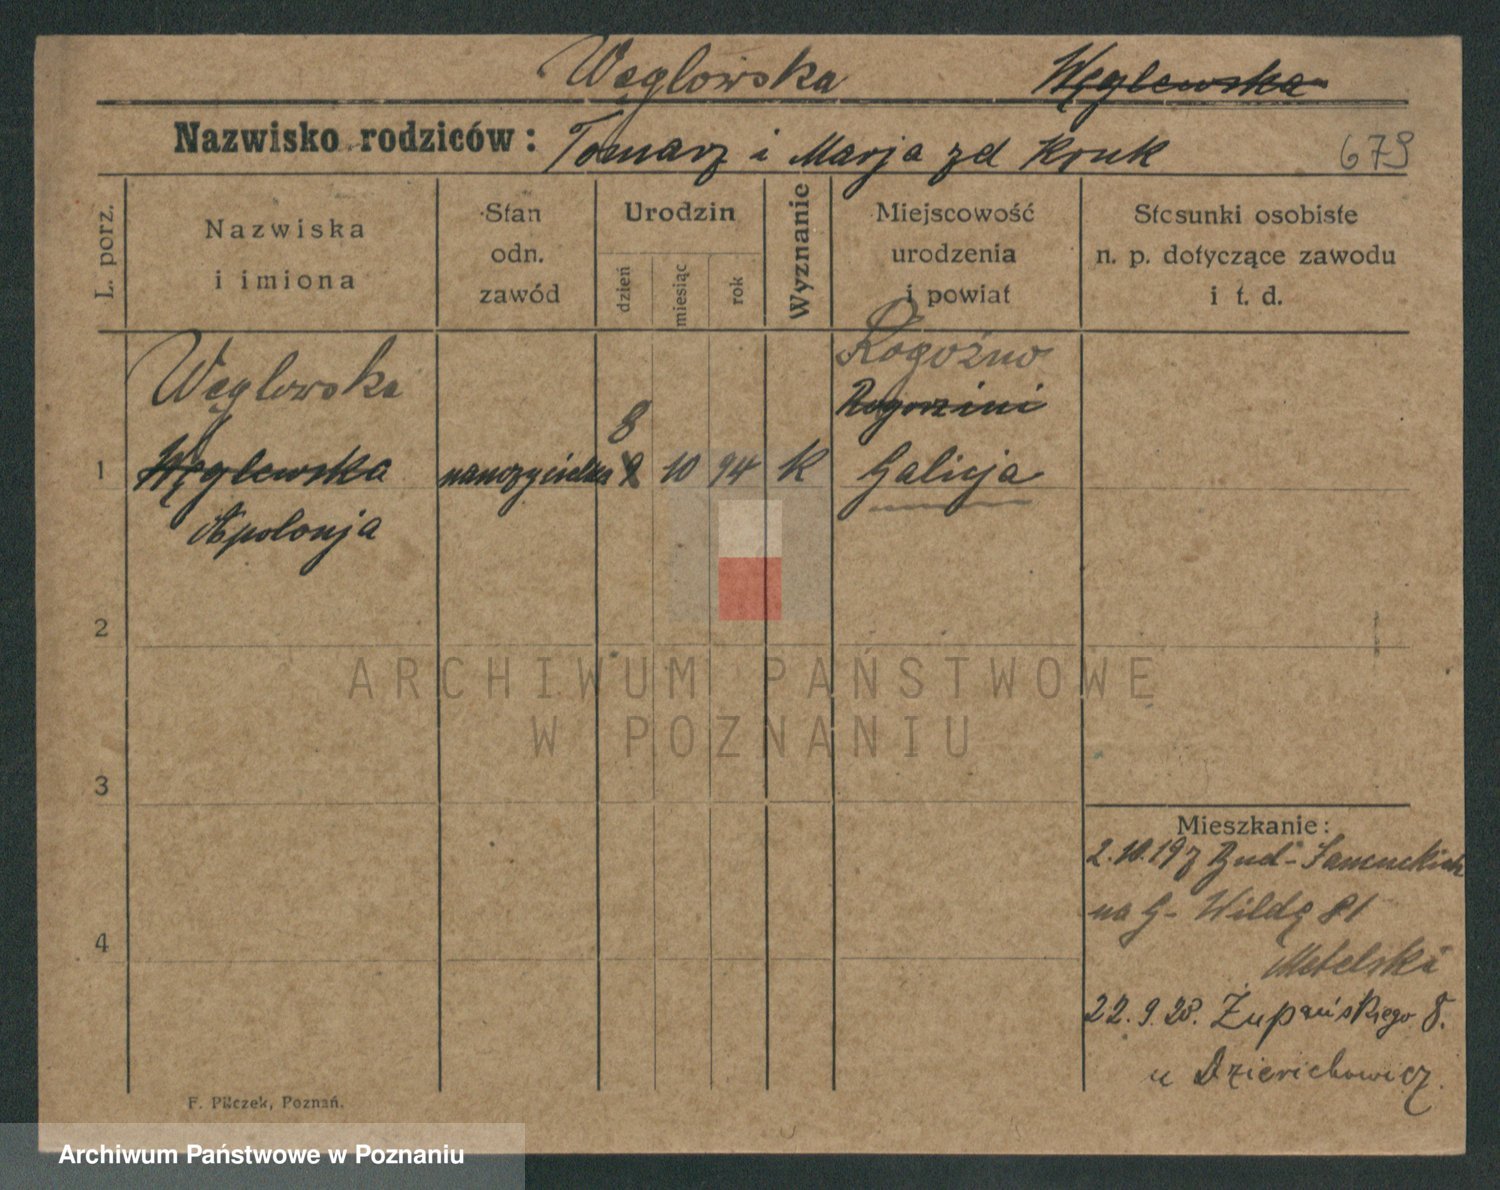 Węglowska Węglewska
Nazwisko rodziców: Tomarz i Marja zd Kruk 679
L. porz.
Nazwiska
i imiona
Stan
odn.
zawód
Urodzin
dzień
miesiąc
rok
Wyznanie
Miejscowość
urodzenia
i powiat
Stosunki osobiste
n. p. dotyczące zawodu
i t. d.
Węglowska
Rogoźno
Rogorzini
8
1 Węglewska nauczycielka 9 10 94 K Galicja
Apolonja
2
ARCHIWUM PAŃSTWOWE
W POZNANIU
3
Mieszkanie:
2.10.197
na G- Wildę 81
Metelski
4
22.9.28. Żupańskiego 8.
u Dzierichowicz.
F. Pilczek, Poznań.
Archiwum Państwowe w Poznaniu